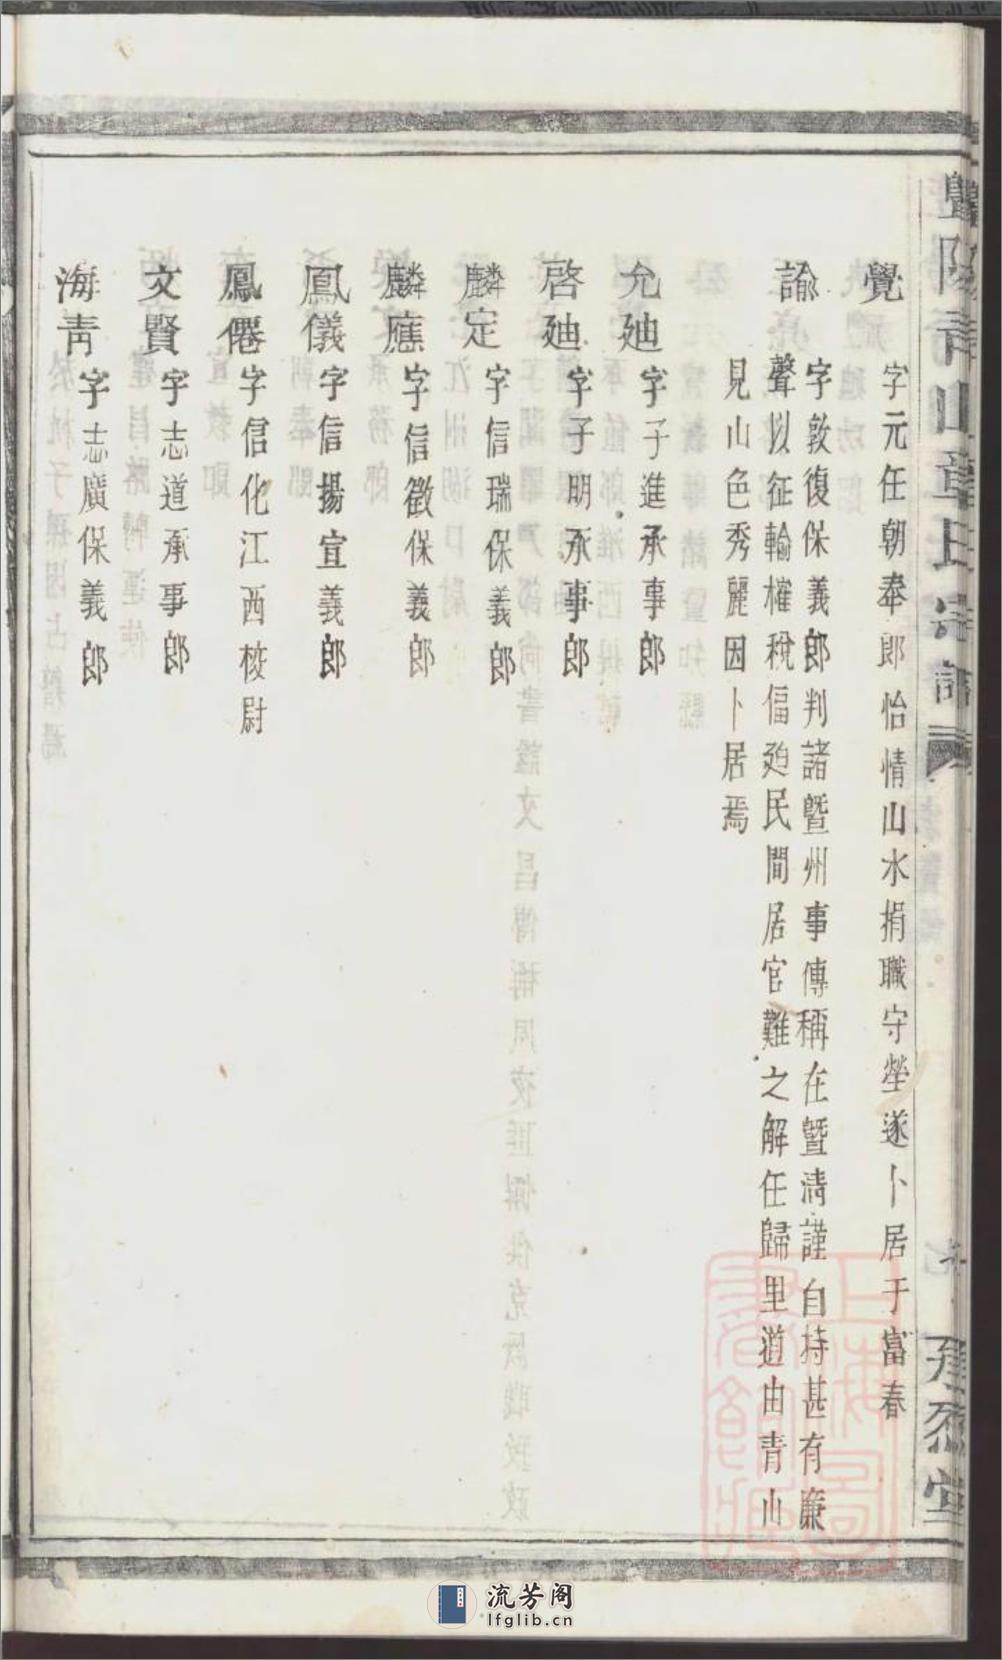 暨陽青山章氏宗譜
承烈堂
覺 字元任朝奉郎怡情山水捐職守塋遂卜居于富春
諭 字敦復保義郎判諸暨州事傳稱在暨清謹自持甚有廉
聲拟征輸榷稅偪廹民間居官難之解任歸里道由青山
見山色秀麗因卜居焉
允廸 字子進承事郎
啓廸 字子明承事郎
麟定 字信瑞保義郎
麟應 字信徵保義郎
鳳儀 字信揚宣義郎
鳳僊 字信化江西校尉
文賢 字志道承事郎
海青 字志廣保義郎
上海圖書館藏
流芳阁
lfglib.cn